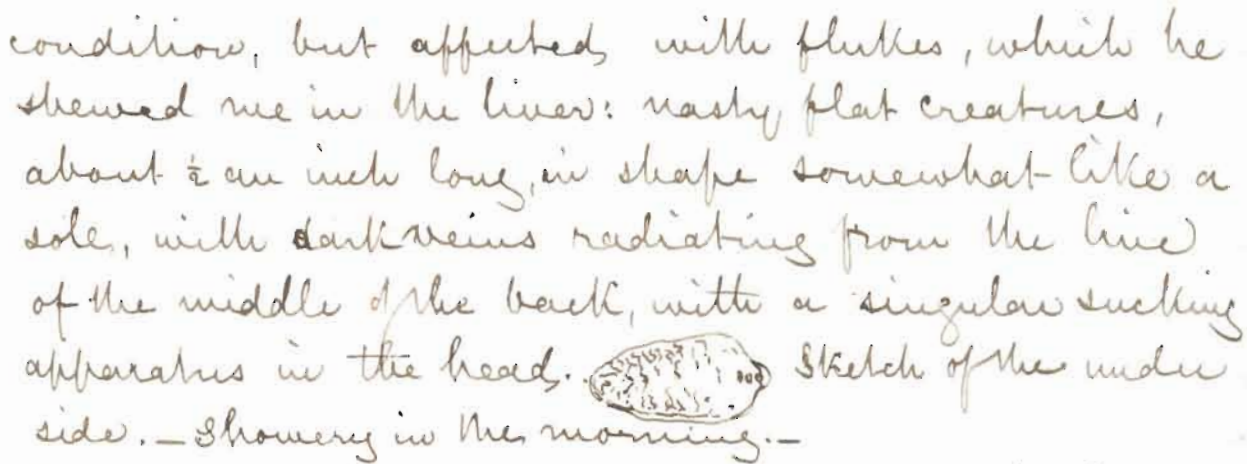 condition, but affected with flukes, which he
shewed me in the liver: nasty flat creatures,
about ½ an inch long, in shape somewhat like a
sole, with dark veins radiating from the line
of the middle of the back, with a singular sucking
apparatus in the head. Sketch of the under
side. – Showery in the morning. –